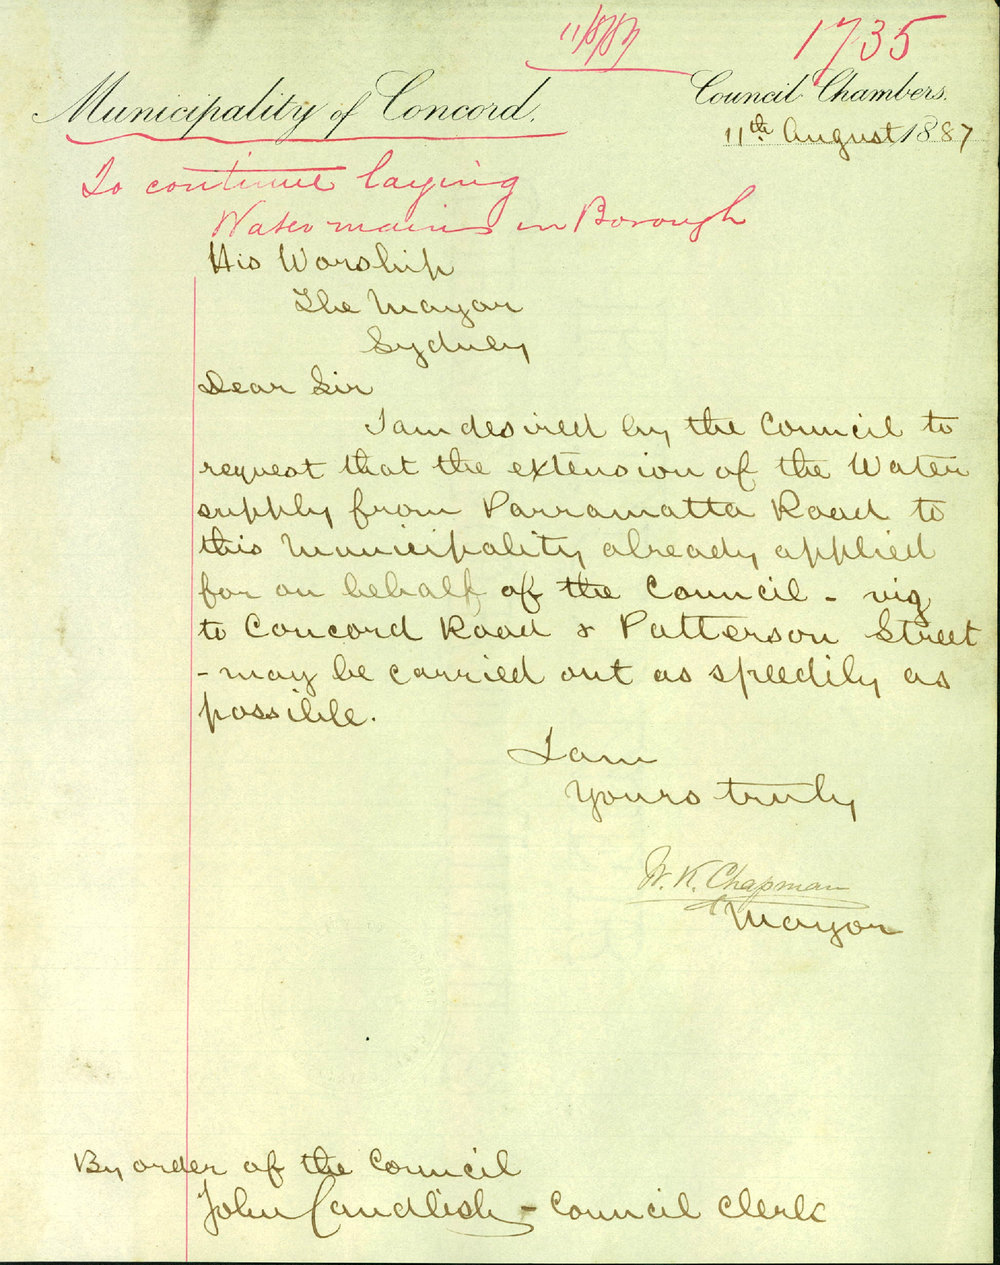 11/8/87
1735
Municipality of Concord.
Council Chambers.
11th August 1887
To continue laying
Water mains in Borough
His Worship
The Mayor
Sydney
Dear Sir
I am desired by the Council to
request that the extension of the Water
supply from Parramatta Road to
this Municipality already applied
for on behalf of the Council - viz
to Concord Road & Patterson Street
- may be carried out as speedily as
possible.
I am
Yours truly
W. K. Chapman
Mayor
By order of the Council
John Candlish - Council Clerk